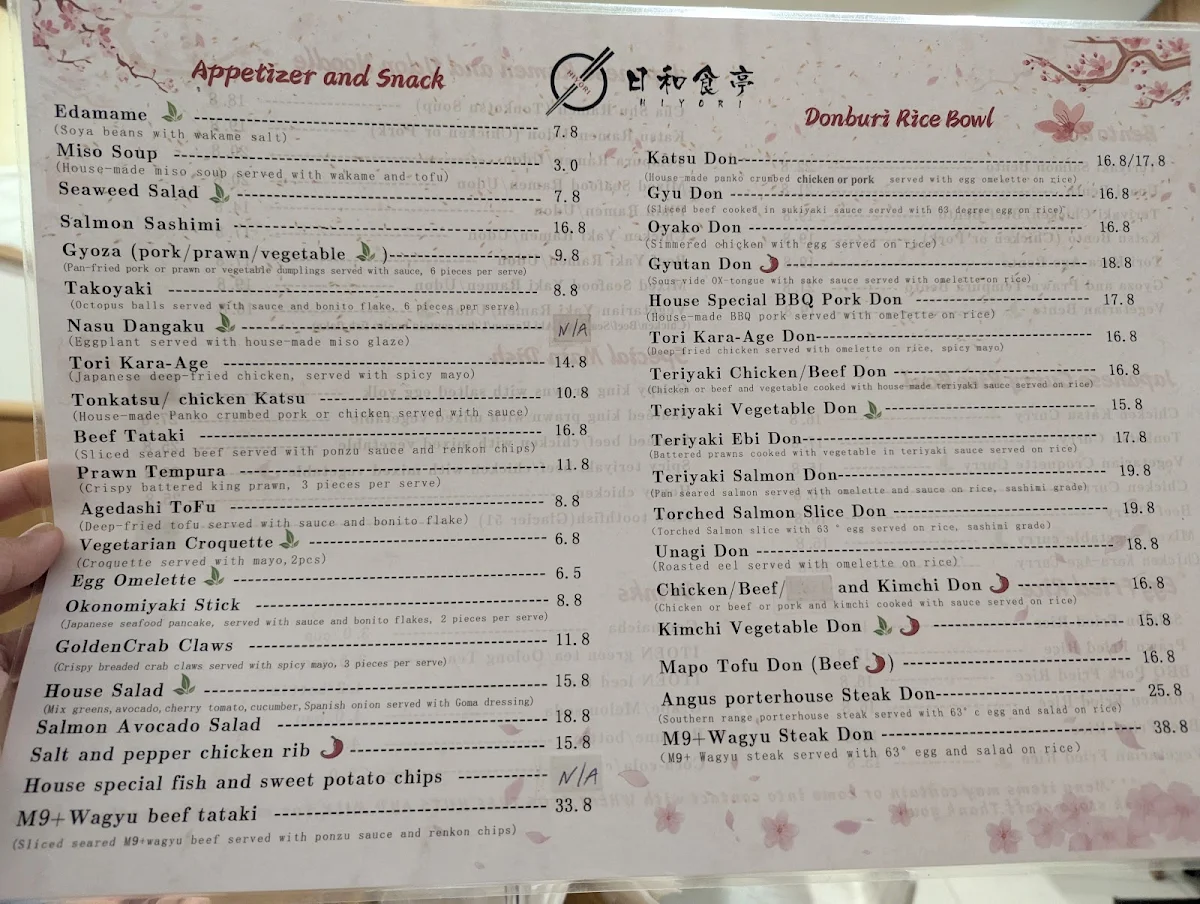 Appetizer and Snack
Edamame 7.8
(Soya beans with wakame salt)
Miso Soup 3.0
(House-made miso soup served with wakame and tofu)
Seaweed Salad 7.8
Salmon Sashimi 16.8
Gyoza (pork/prawn/vegetable ) 9.8
(Pan-fried pork or prawn or vegetable dumplings served with sauce, 6 pieces per serve)
Takoyaki 8.8
(Octopus balls served with sauce and bonito flake, 6 pieces per serve)
Nasu Dangaku N/A
(Eggplant served with house-made miso glaze)
Tori Kara-Age 14.8
(Japanese deep-fried chicken, served with spicy mayo)
Tonkatsu/ chicken Katsu 10.8
(House-made Panko crumbed pork or chicken served with sauce)
Beef Tataki 16.8
(Sliced seared beef served with ponzu sauce and renkon chips)
Prawn Tempura 11.8
(Crispy battered king prawn, 3 pieces per serve)
Agedashi ToFu 8.8
(Deep-fried tofu served with sauce and bonito flake)
Vegetarian Croquette 6.8
(Croquette served with mayo,2pcs)
Egg Omelette 6.5
Okonomiyaki Stick 8.8
(Japanese seafood pancake, served with sauce and bonito flakes, 2 pieces per serve)
GoldenCrab Claws 11.8
(Crispy breaded crab claws served with spicy mayo, 3 pieces per serve)
House Salad 15.8
(Mix greens,avocado,cherry tomato,cucumber,Spanish onion served with Goma dressing)
Salmon Avocado Salad 18.8
Salt and pepper chicken rib 15.8
House special fish and sweet potato chips N/A
M9+Wagyu beef tataki 33.8
(Sliced seared M9+wagyu beef served with ponzu sauce and renkon chips)
HIYORI
日和食亭
HIYORI
Donburi Rice Bowl
Katsu Don 16.8/17.8
(House made panko crumbed chicken or pork served with egg omelette on rice)
Gyu Don 16.8
(Sliced beef cooked in sukiyaki sauce served with 63 degree egg on rice)
Oyako Don 16.8
(Simmered chicken with egg served on rice)
Gyutan Don 18.8
(Sous-vide OX-tongue with sake sauce served with omelette on rice)
House Special BBQ Pork Don 17.8
(House-made BBQ pork served with omelette on rice)
Tori Kara-Age Don 16.8
(Deep-fried chicken served with omelette on rice, spicy mayo)
Teriyaki Chicken/Beef Don 16.8
(Chicken or beef and vegetable cooked with house made teriyaki sauce served on rice)
Teriyaki Vegetable Don 15.8
Teriyaki Ebi Don 17.8
(Battered prawns cooked with vegetable in teriyaki sauce served on rice)
Teriyaki Salmon Don 19.8
(Pan seared salmon served with omelette and sauce on rice, sashimi grade)
Torched Salmon Slice Don 19.8
(Torched Salmon slice with 63 ° egg served on rice, sashimi grade)
Unagi Don 18.8
(Roasted eel served with omelette on rice)
Chicken/Beef/ and Kimchi Don 16.8
(Chicken or beef or pork and kimchi cooked with sauce served on rice)
Kimchi Vegetable Don 15.8
Mapo Tofu Don (Beef ) 16.8
Angus porterhouse Steak Don 25.8
(Southern range porterhouse steak served with 63° c egg and salad on rice)
M9+Wagyu Steak Don 38.8
(M9+ Wagyu steak served with 63° egg and salad on rice)